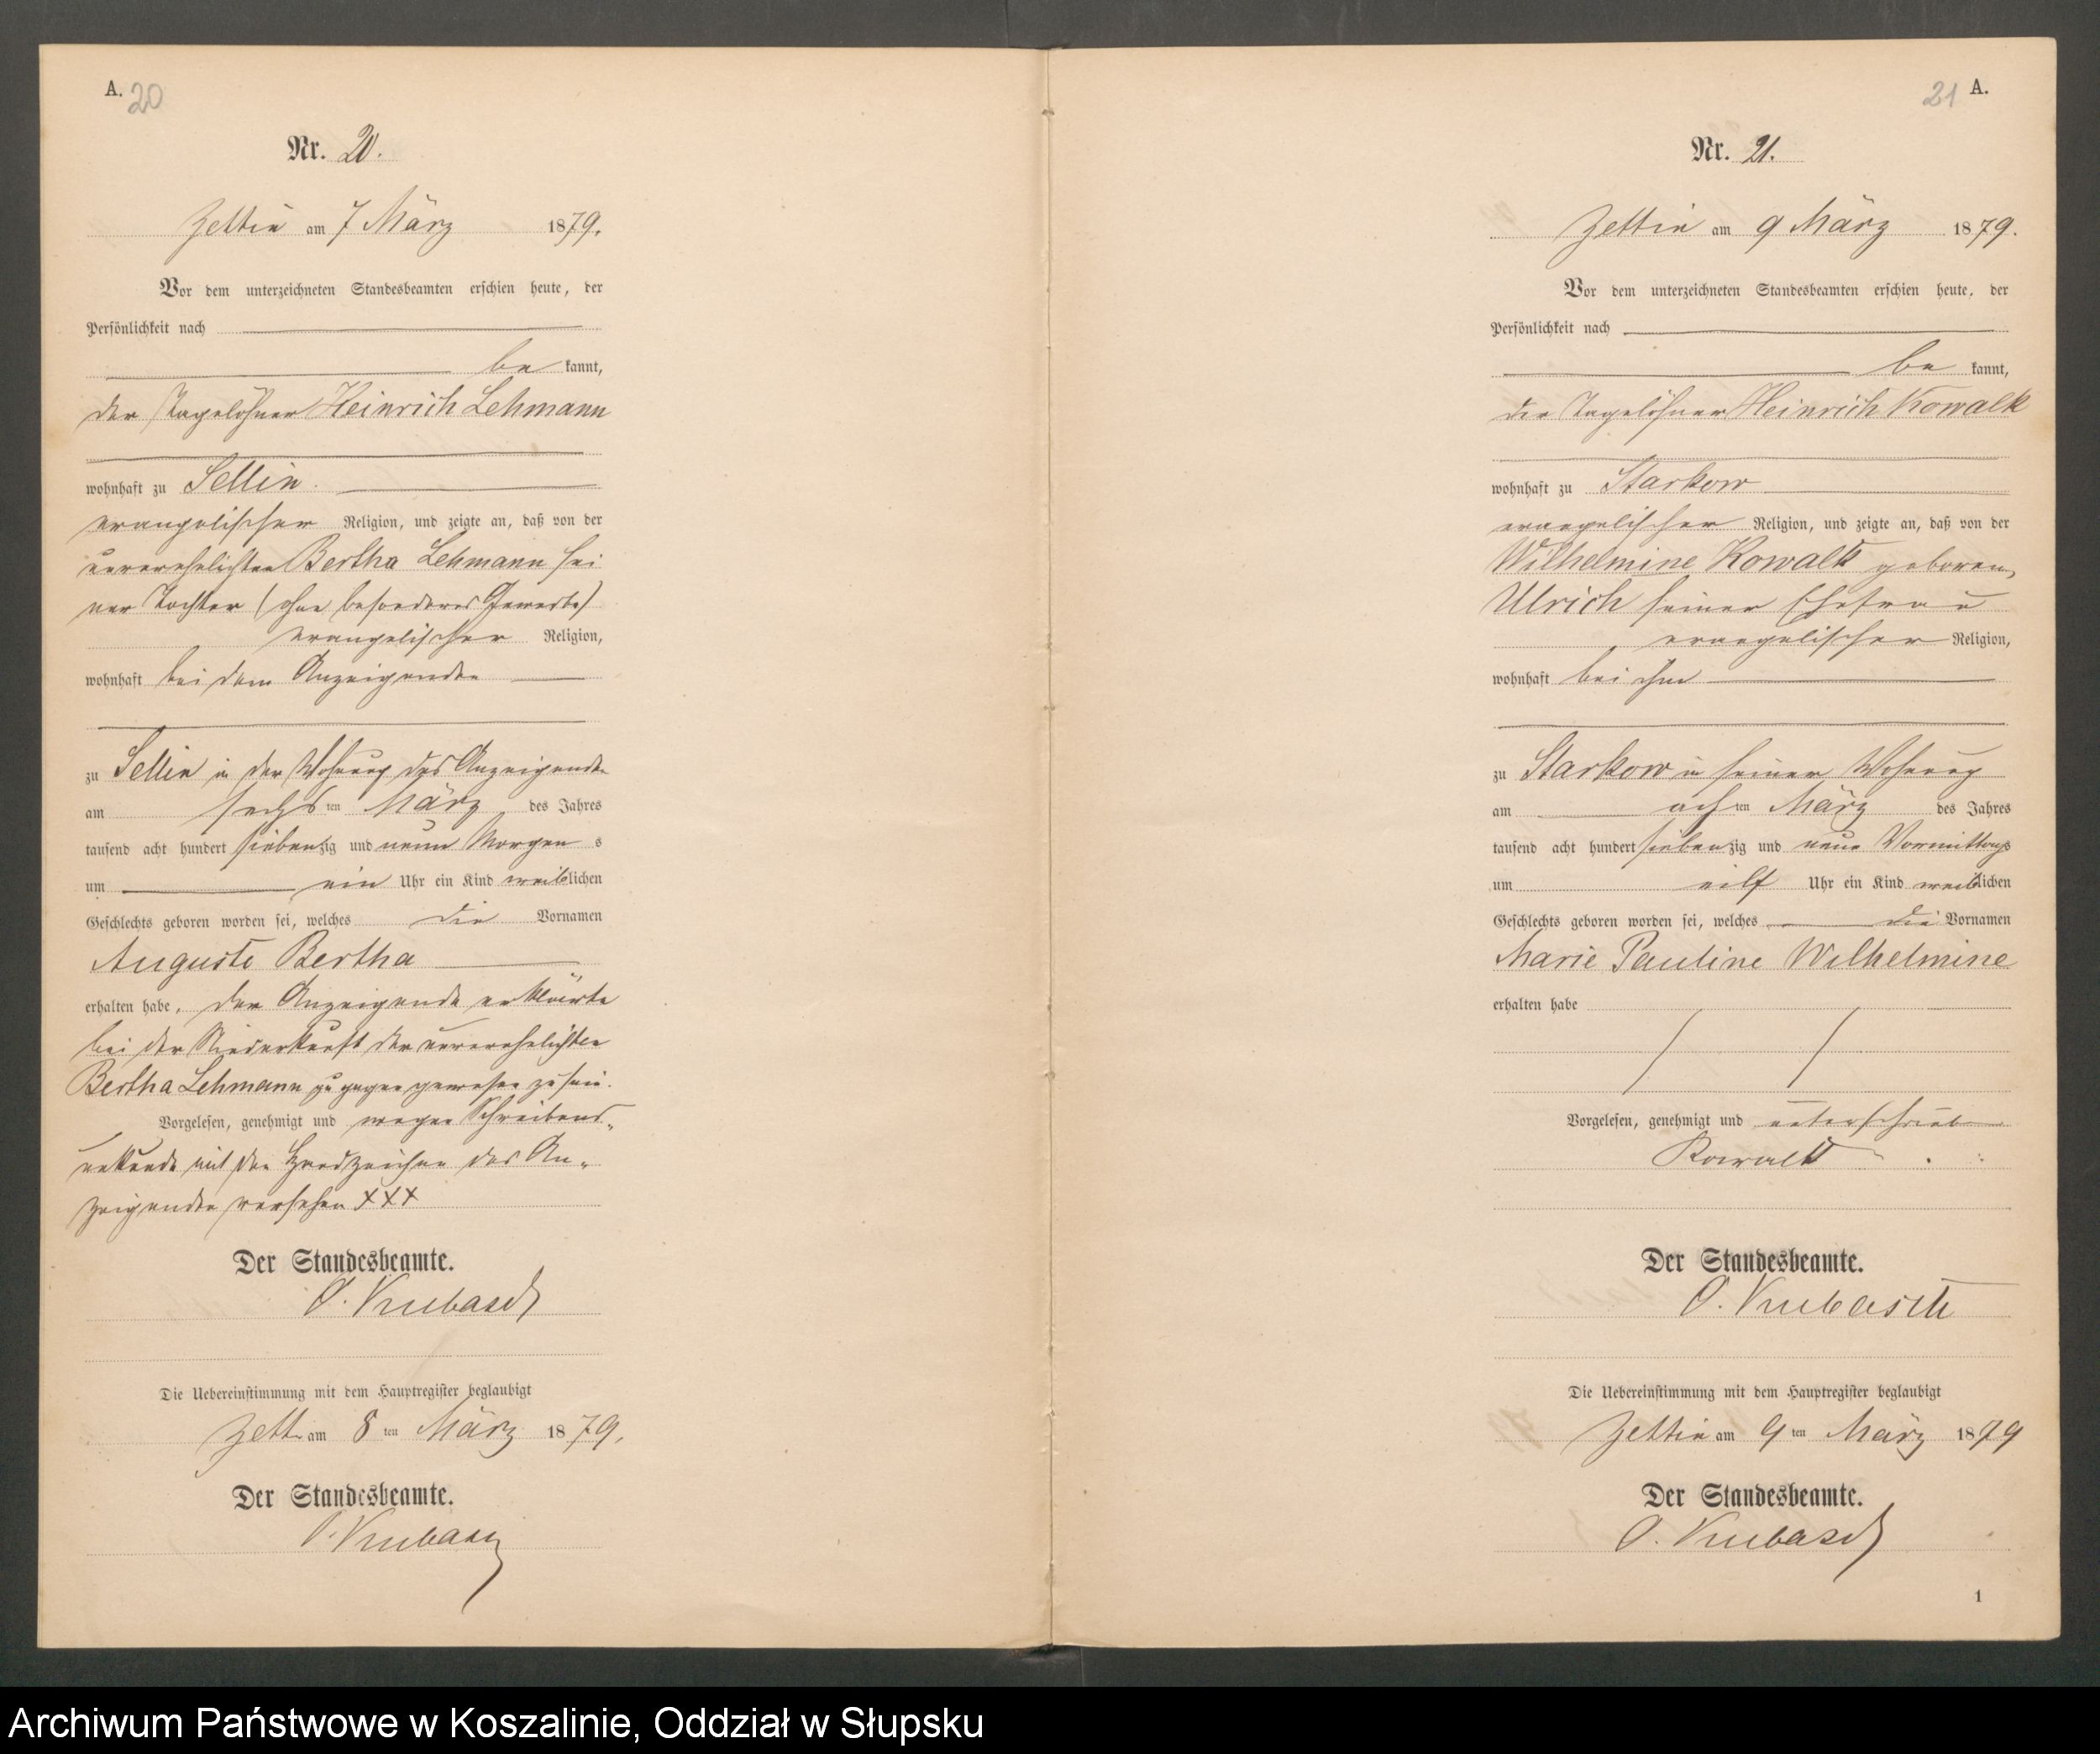 A. 20
Nr. 20.
Zettin am 7 März 1879.
Vor dem unterzeichneten Standesbeamten erschien heute, der
Persönlichkeit nach
be kannt,
der Tagelöhner Heinrich Lehmann
wohnhaft zu Sellin.
evangelischer Religion, und zeigte an, daß von der
unverehelichten Bertha Lehmann sei
ner Tochter (ohne besonderes Gewerbe)
evangelischer Religion,
wohnhaft bei dem Anzeigenden
zu Sellin in der Wohnung des Anzeigenden
am sechs ten März des Jahres
tausend acht hundert siebenzig und neun Morgen s
um ein Uhr ein Kind weiblichen
Geschlechts geboren worden sei, welches die Vornamen
Auguste Bertha
erhalten habe, der Anzeigende erklärte
bei der Niederkunft der unverehelichten
Bertha Lehmann zugegen gewesen zu sein.
Vorgelesen, genehmigt und wegen Schreibens„
unkunde mit den Handzeichen des An„
zeigenden versehen XXX
Der Standesbeamte.
O. Krubasch
Die Uebereinstimmung mit dem Hauptregister beglaubigt
Zett. am 8 ten März 1879.
Der Standesbeamte.
O. Krubasch
21 A.
Nr. 21.
Zettin am 9 März 1879.
Vor dem unterzeichneten Standesbeamten erschien heute, der
Persönlichkeit nach
be kannt,
der Tagelöhner Heinrich Kowalk
wohnhaft zu Starkow
evangelischer Religion, und zeigte an, daß von der
Wilhelmine Kowalk geboren,
Ulrich seiner Ehefrau
evangelischer Religion,
wohnhaft bei ihm
zu Starkow in seiner Wohnung
am ach ten März des Jahres
tausend acht hundert siebenzig und neun Vormittags
um eilf Uhr ein Kind weiblichen
Geschlechts geboren worden sei, welches die Vornamen
Marie Pauline Wilhelmine
erhalten habe
Vorgelesen, genehmigt und unterschrieben
Kowalk
Der Standesbeamte.
O. Krubasch
Die Uebereinstimmung mit dem Hauptregister beglaubigt
Zettin am 9 ten März 1879
Der Standesbeamte.
O. Krubasch
1
Archiwum Państwowe w Koszalinie, Oddział w Słupsku